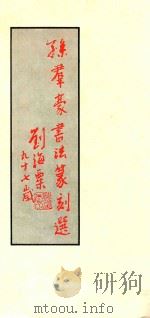 孫羣豪書法篆刻選
劉海粟
九十七歲
mtoou.info mtoou.com